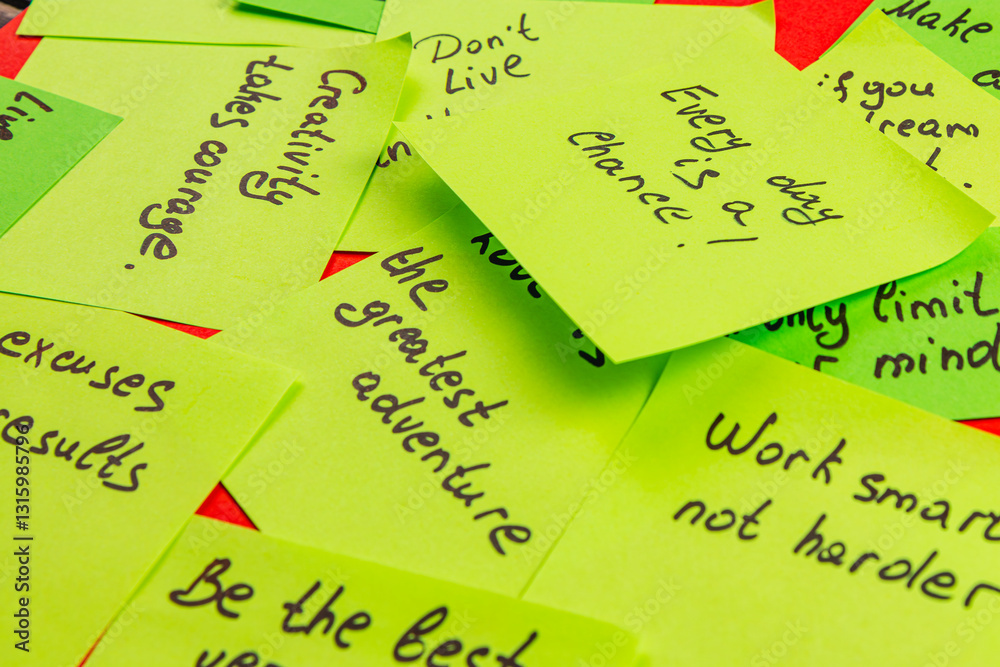 Make
Don't
Live
if you
dream
Creativity
takes courage.
Every day
is a
chance!
Live
only limit
mind
the
greatest
adventure
excuses
results
Work smart
not harder
Be the best
Adobe Stock | #1315985796